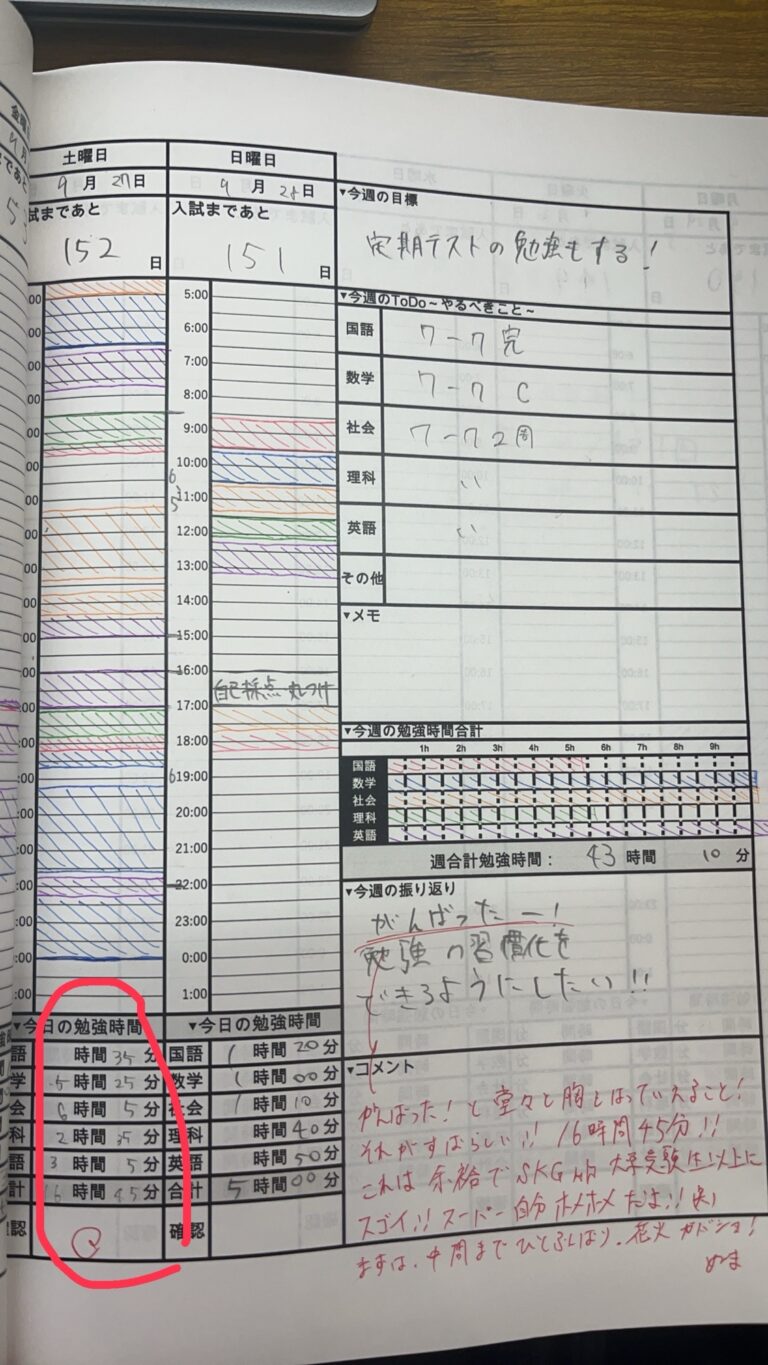 土曜日
9月27日
試まであと
152日
日曜日
9月28日
入試まであと
151日
5:00
6:00
7:00
8:00
9:00
10:00
11:00
12:00
13:00
14:00
15:00
16:00
自己採点 丸つけ
17:00
18:00
19:00
20:00
21:00
22:00
23:00
0:00
1:00
▼今日の勉強時間
語 時間35分
学 5時間25分
会 6時間5分
科 2時間35分
語 3時間5分
計 16時間45分
確認
▼今日の勉強時間
国語 1時間20分
数学 1時間00分
社会 1時間10分
理科 時間40分
英語 時間50分
合計 5時間00分
確認
▼今週の目標
定期テストの勉強もする!
▼今週のToDo~やるべきこと~
国語 7-7 完
数学 7-7 C
社会 7-7 2周
理科 〃
英語 〃
その他
▼メモ
▼今週の勉強時間合計
1h 2h 3h 4h 5h 6h 7h 8h 9h
国語
数学
社会
理科
英語
週合計勉強時間: 43時間10分
▼今週の振り返り
がんばったー!
勉強の習慣化を
できるようにしたい!!
▼コメント
がんばった!と堂々と胸をはっていえること!
それがすばらしい!! 16時間45分!!
これは余裕でSKG 大学受験生以上に
スゴイ!! スーパー自分ホメホメだよ!!
まずは、中間までひとふんばり、